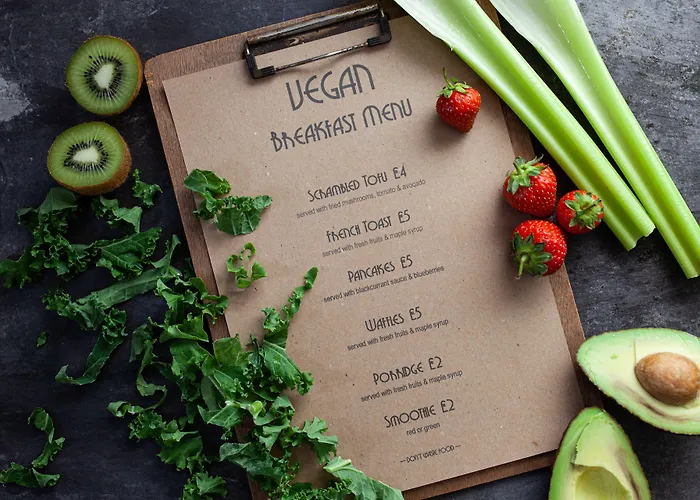 VEGAN
BREAKFAST MENU
SCRAMBLED TOFU £4
served with fried mushrooms, tomato & avocado
FRENCH TOAST £5
served with fresh fruits & maple syrup
PANCAKES £5
served with blackcurrant sauce & blueberries
WAFFLES £5
served with fresh fruits & maple syrup
PORRIDGE £2
served with fresh fruits & maple syrup
SMOOTHIE £2
red or green
—DON'T WASTE FOOD—